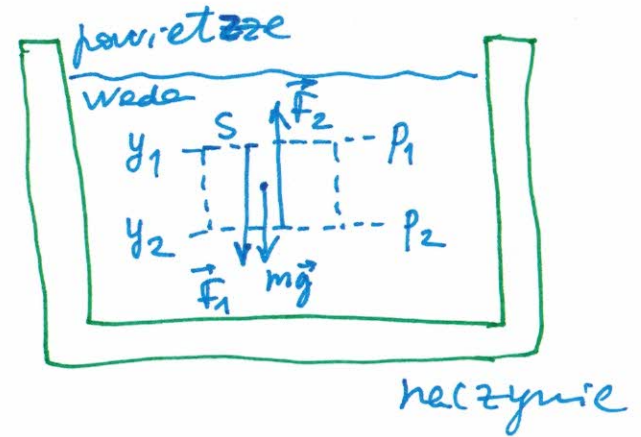 powietrze
woda
S F⃗₂
y₁ p₁
y₂ p₂
F⃗₁ mg⃗
naczynie